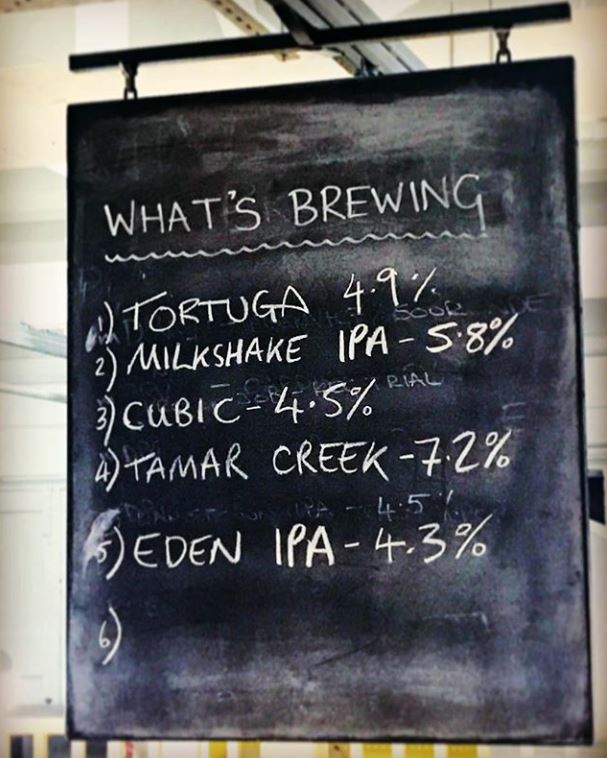 WHAT'S BREWING
1) TORTUGA 4.9%
2) MILKSHAKE IPA - 5.8%
3) CUBIC - 4.5%
4) TAMAR CREEK - 7.2%
5) EDEN IPA - 4.3%
6)